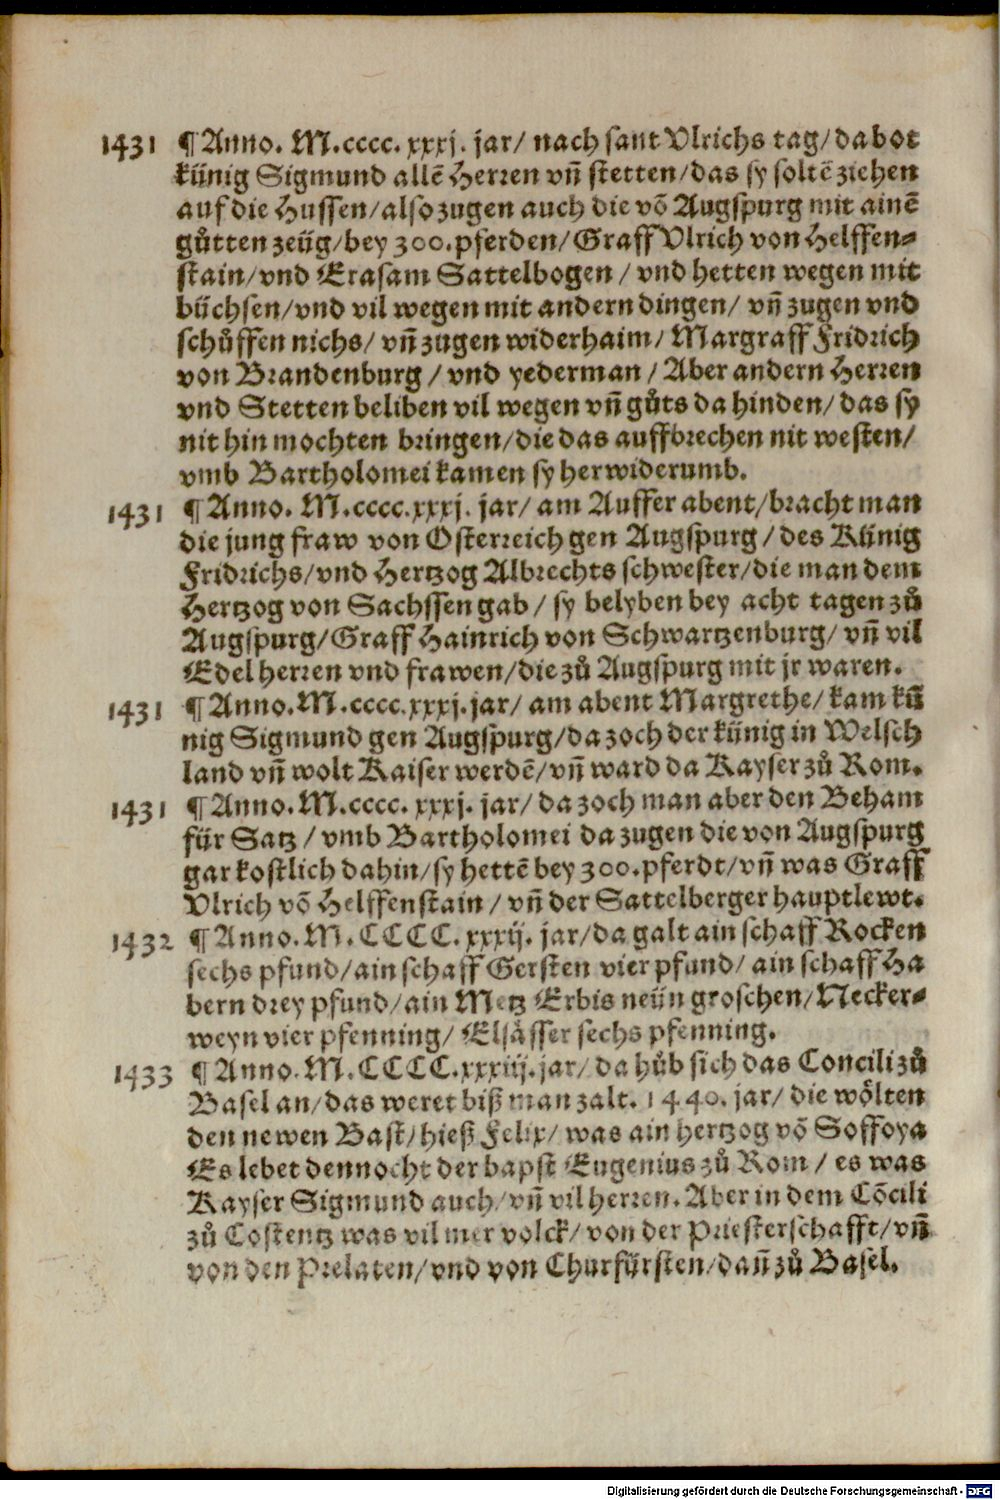 1431 ¶ Anno. M.cccc.xxxj. jar/ nach sant Vlrichs tag/ da bot
künig Sigmund allē Herren vn̄ stetten/ das sy soltē ziehen
auf die Hussen/ also zugen auch die vō Augspurg mit ainē
gůtten zeüg/ bey 300. pferden/ Graff Vlrich von Helffen-
stain/ vnd Erasam Sattelbogen / vnd hetten wegen mit
büchsen/ vnd vil wegen mit andern dingen/ vn̄ zugen vnd
schůffen nichs/ vn̄ zugen wider haim/ Margraff Fridrich
von Brandenburg / vnd yederman / Aber andern Herren
vnd Stetten beliben vil wegen vn̄ gůts da hinden/ das sy
nit hin mochten bringen/ die das auffbrechen nit westen/
vmb Bartholomei kamen sy her widerumb.
1431 ¶ Anno. M.cccc.xxxj. jar/ am Auffer abent/ bracht man
die jung fraw von Osterreich gen Augspurg / des Künig
Fridrichs/ vnd Hertzog Albrechts schwester/ die man dem
Hertzog von Sachssen gab / sy belyben bey acht tagen zů
Augspurg/ Graff Hainrich von Schwartzenburg/ vn̄ vil
Edel herren vnd frawen/ die zů Augspurg mit jr waren.
1431 ¶ Anno. M.cccc.xxxj. jar/ am abent Margrethe/ kam kü
nig Sigmund gen Augspurg/ da zoch der künig in Welsch
land vn̄ wolt Kaiser werdē/ vn̄ ward da Kayser zů Rom.
1431 ¶ Anno. M.cccc. xxxj. jar/ da zoch man aber den Beham
für Satz / vmb Bartholomei da zugen die von Augspurg
gar kostlich dahin/ sy hettē bey 300. pferdt/ vn̄ was Graff
Vlrich vō Helffenstain / vn̄ der Sattelberger hauptlewt.
1432 ¶ Anno. M. CCCC. xxxij. jar/ da galt ain schaff Rocken
sechs pfund/ ain schaff Gersten vier pfund/ ain schaff Ha
bern drey pfund/ ain Metz Erbis neün groschen/ Necker-
weyn vier pfenning/ Elsässer sechs pfenning.
1433 ¶ Anno. M. CCCC. xxxiij. jar/ da hůb sich das Concili zů
Basel an/ das weret biß man zalt. 1440. jar/ die wölten
den newen Bast/ hieß Felix/ was ain hertzog vō Soffoya
Es lebet dennocht der bapst Eugenius zů Rom / es was
Kayser Sigmund auch/ vn̄ vil herren. Aber in dem Cōcili
zů Costentz was vil mer volck/ von der Priesterschafft/ vn̄
von den Prelaten/ vnd von Churfürsten/ dan̄ zů Basel.
Digitalisierung gefördert durch die Deutsche Forschungsgemeinschaft - DFG